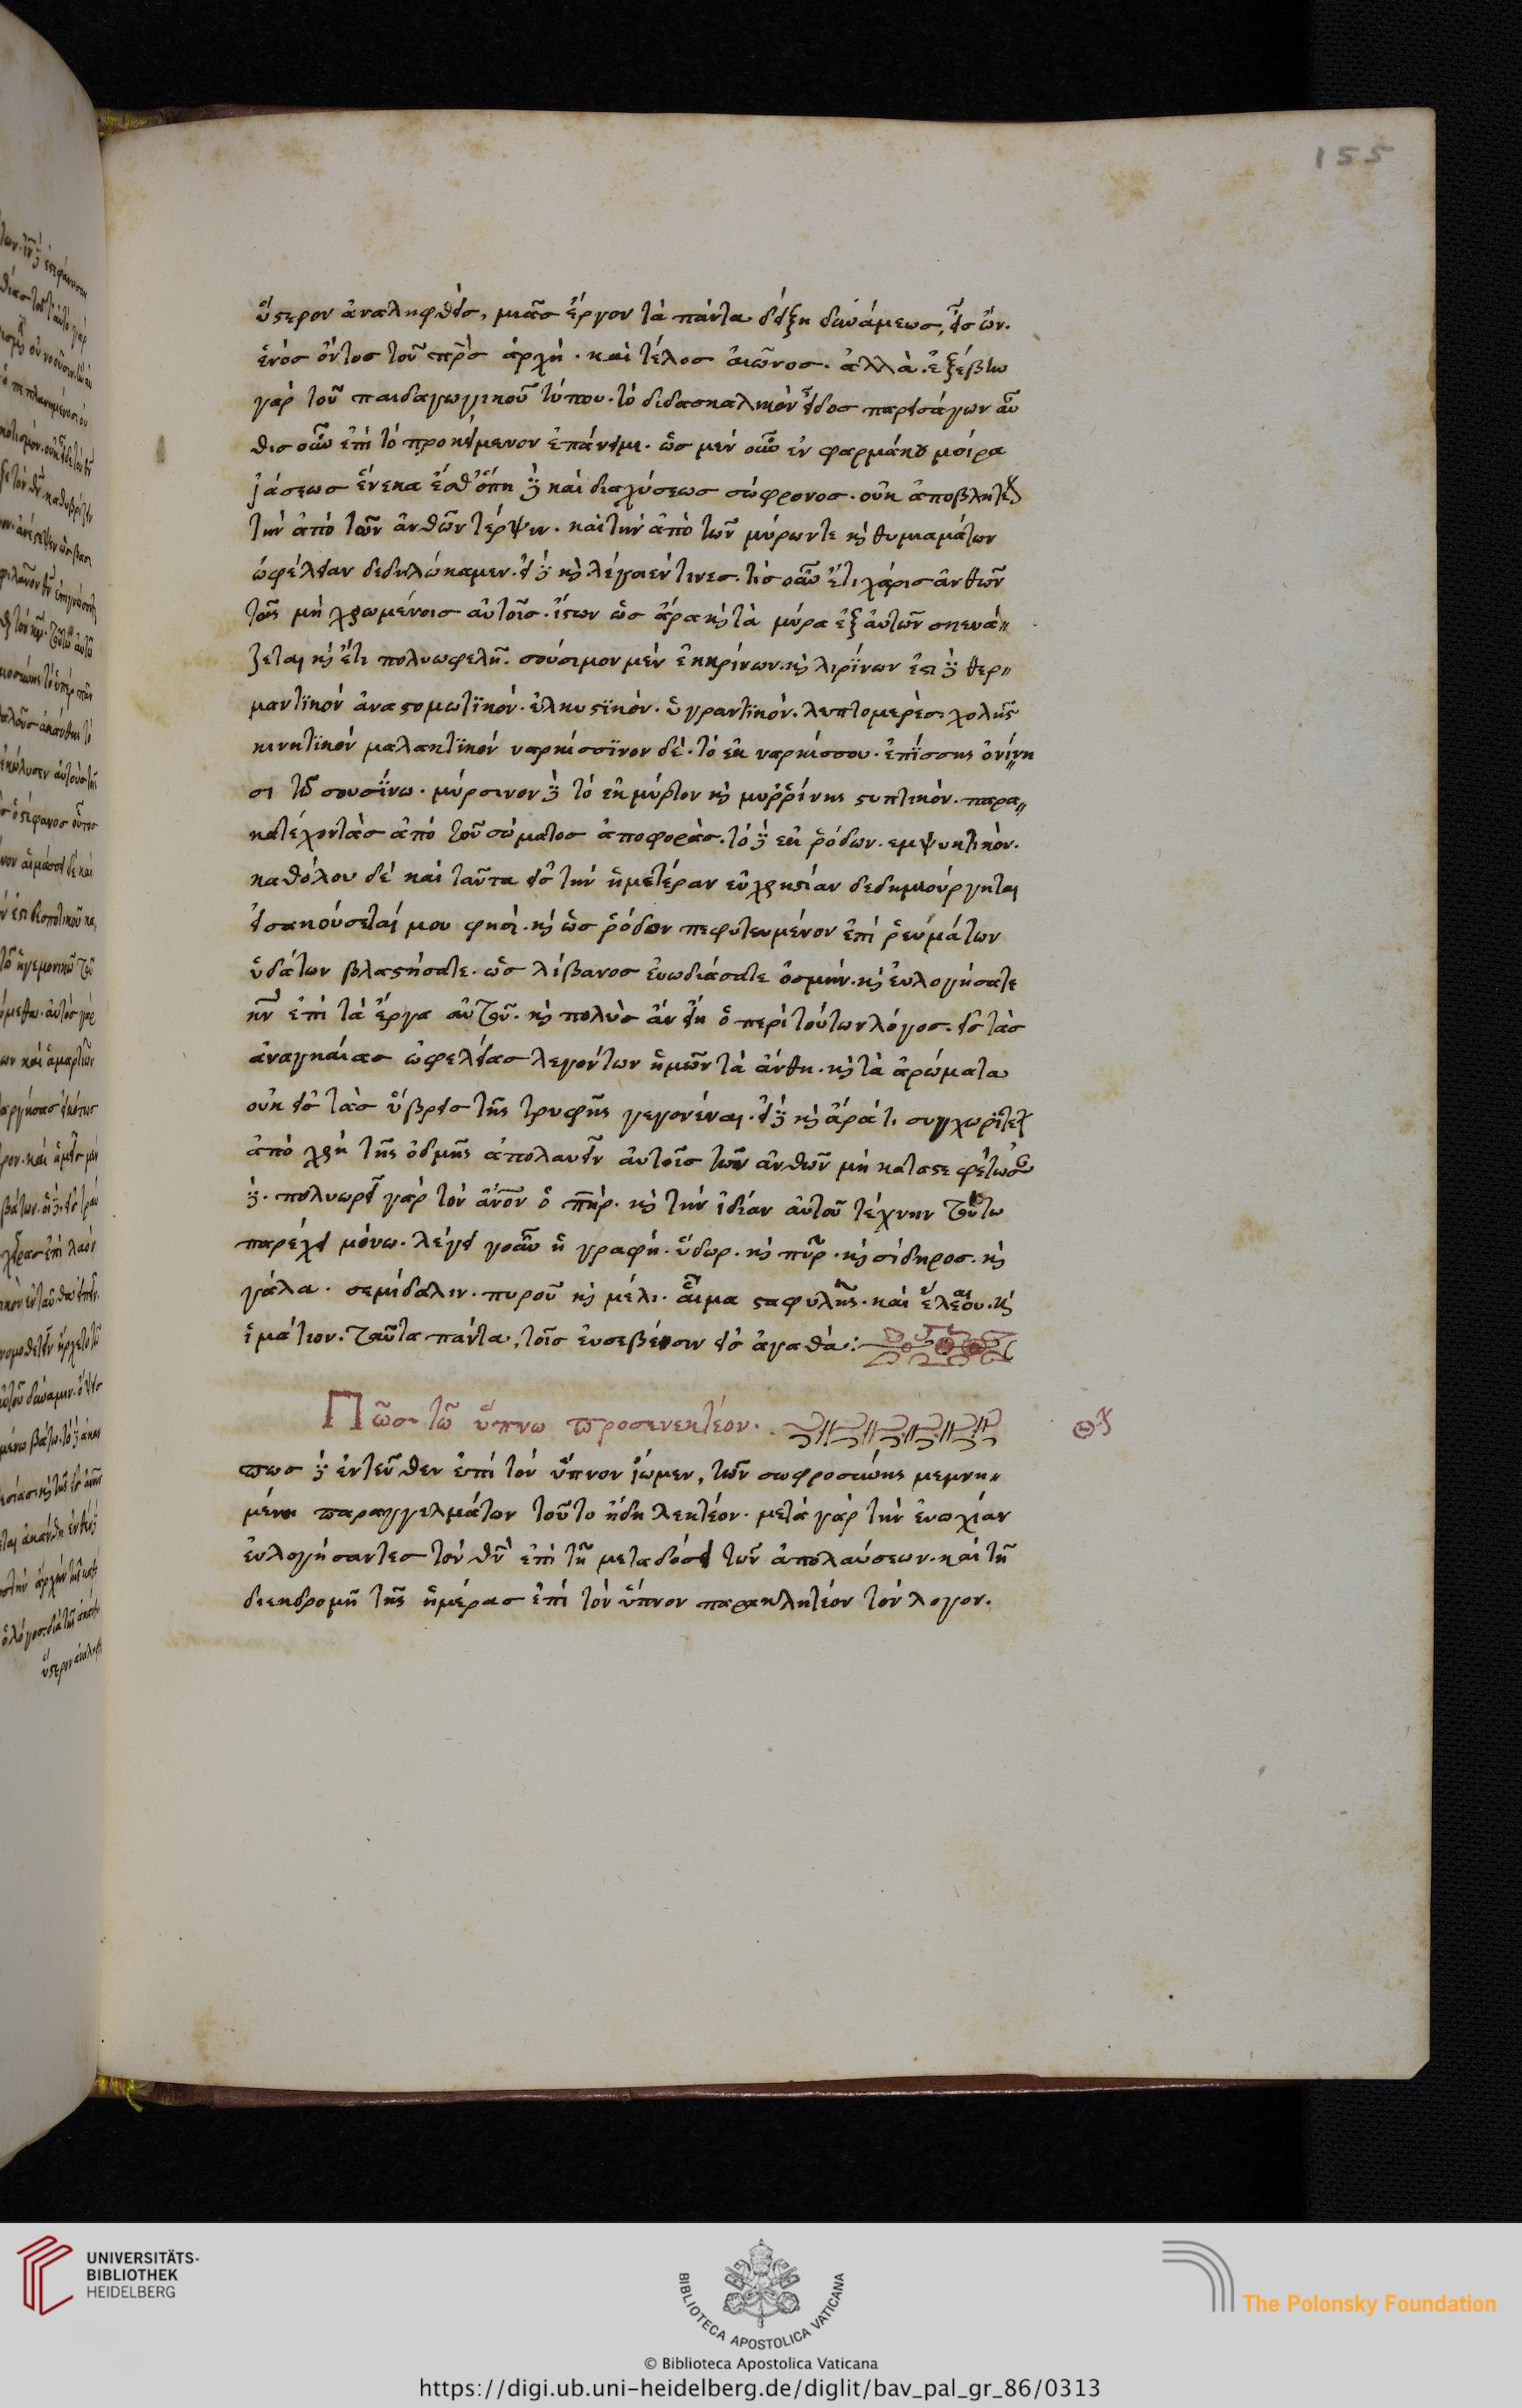 155
ὕστερον ἀναληφθεὶς, μιᾶς ἔργον τὰ πάντα δείξῃ δυνάμεως, εἷς ὢν.
ἑνὸς ὄντος τοῦ πρς ἀρχὴ. καὶ τέλος αἰῶνος. ἀλλὰ. ἐξέβην
γὰρ τοῦ παιδαγωγικοῦ τύπου. τὸ διδασκαλικὸν εἶδος παρεισάγων αὖ
θις οὖν ἐπὶ τὸ προκείμενον ἐπάνειμι. ὡς μὲν οὖν ἐν φαρμάκου μοίρα
ἰάσεως ἕνεκα ἔσθ ὅπη δὲ καὶ διαχύσεως σώφρονος. οὐκ ἀποβλητέον
τὴν ἀπὸ τῶν ἀνθῶν τέρψιν. καὶ τὴν ἀπὸ τῶν μύρων τε κὶ θυμιαμάτων
ὠφέλειαν δεδηλώκαμεν. εἰ δὲ κὶ λέγοιέν τινες. τίς οὖν ἔτι χάρις ἀνθῶν
τοῖς μὴ χρωμένοις αὐτοῖς. ἴστων ὡς ἄρα κὶ τὰ μύρα ἐξ αὐτῶν σκευά〃
ζεται κὶ ἔτι πολυωφελῆ. σούσιμον μὲν ἐκ κρίνων. κὶ λιρίνων ἔστι δὲ θερ〃
μαντικὸν ἀναστομωτικὸν. ἑλκυστικὸν. ὑγραντικὸν. λεπτομερὲς. χολῆς
κινητικὸν μαλακτικὸν ναρκίσσινον δὲ. τὸ ἐκ ναρκίσσου. ἐπίσσης ὀνίνη
σι τῶ σουσίνω. μύρσινον δὲ τὸ ἐκ μύρτον κὶ μυῤῥίνης στυπτικὸν. παρα〃
κατέχον τὰς ἀπὸ τοῦ σώματος ἀποφορὰς. τὸ δὲ ἐκ ῥόδων. εμψυκτικὸν.
καθόλου δὲ καὶ ταῦτα εἰς τὴν ἡμετέραν εὐχρηστίαν δεδημιούργηται
εἰσακούσεταί μου φησὶ. κὶ ὡς ῥόδον πεφυτευμένον ἐπὶ ῥευμάτων
ὑδάτων βλαστήσατε. ὡς λίβανος εὐωδιάσατε ὀσμὴν. κὶ εὐλογήσατε
κν ἐπὶ τὰ ἔργα αὐτοῦ. κὶ πολὺς ἂν εἴη ὁ περὶ τούτων λόγος. εἰς τὰς
ἀναγκαίας ὠφελείας λεγόντων ἡμῶν τὰ ἄνθη. κὶ τὰ ἀρώματα
οὐκ εἰς τὰς ὕβρεις τῆς τρυφῆς γεγονέναι. εἰ δὲ κὶ ἄρά τι συγχωρητέον
ἀπὸ χρὴ τῆς ὀδμῆς ἀπολαυεῖν αὐτοῖς τῶν ἀνθῶν μὴ καταστεφέτωσαν
δὲ. πολυωρεῖ γὰρ τὸν ἄνον ὁ πηρ. κὶ τὴν ἰδίαν αὐτοῦ τέχνην τούτω
παρέχει μόνω. λέγει γοῦν ἡ γραφὴ. ὕδωρ. κὶ πῦρ. κὶ σίδηρος. κὶ
γάλα. σεμίδαλιν. πυροῦ κὶ μέλι. αἷμα σταφυλῆς. καὶ ἔλεαιου. κὶ
ἱμάτιον. ταῦτα πάντα, τοῖς εὐσεβέσιν εἰς ἀγαθὰ:
Πῶς τῶ ὕπνω προσενεκτέον.
Θον
πως δὲ ἐντεῦθεν ἐπὶ τὸν ὕπνον ἴωμεν, τῶν σωφροσύνης μεμνη〃
μένοι παραγγελμάτων τοῦτο ἤδη λεκτέον. μετὰ γὰρ τὴν εὐωχίαν
εὐλογήσαντες τὸν θν ἐπὶ τῇ μεταδόσει τῶν ἀπολαύσεων. καὶ τῇ
διεκδρομῇ τῆς ἡμέρας ἐπὶ τὸν ὕπνον παρακλητέον τὸν λογον.
UNIVERSITÄTS-
BIBLIOTHEK
HEIDELBERG
BIBLIOTECA APOSTOLICA VATICANA
The Polonsky Foundation
© Biblioteca Apostolica Vaticana
https://digi.ub.uni-heidelberg.de/diglit/bav_pal_gr_86/0313